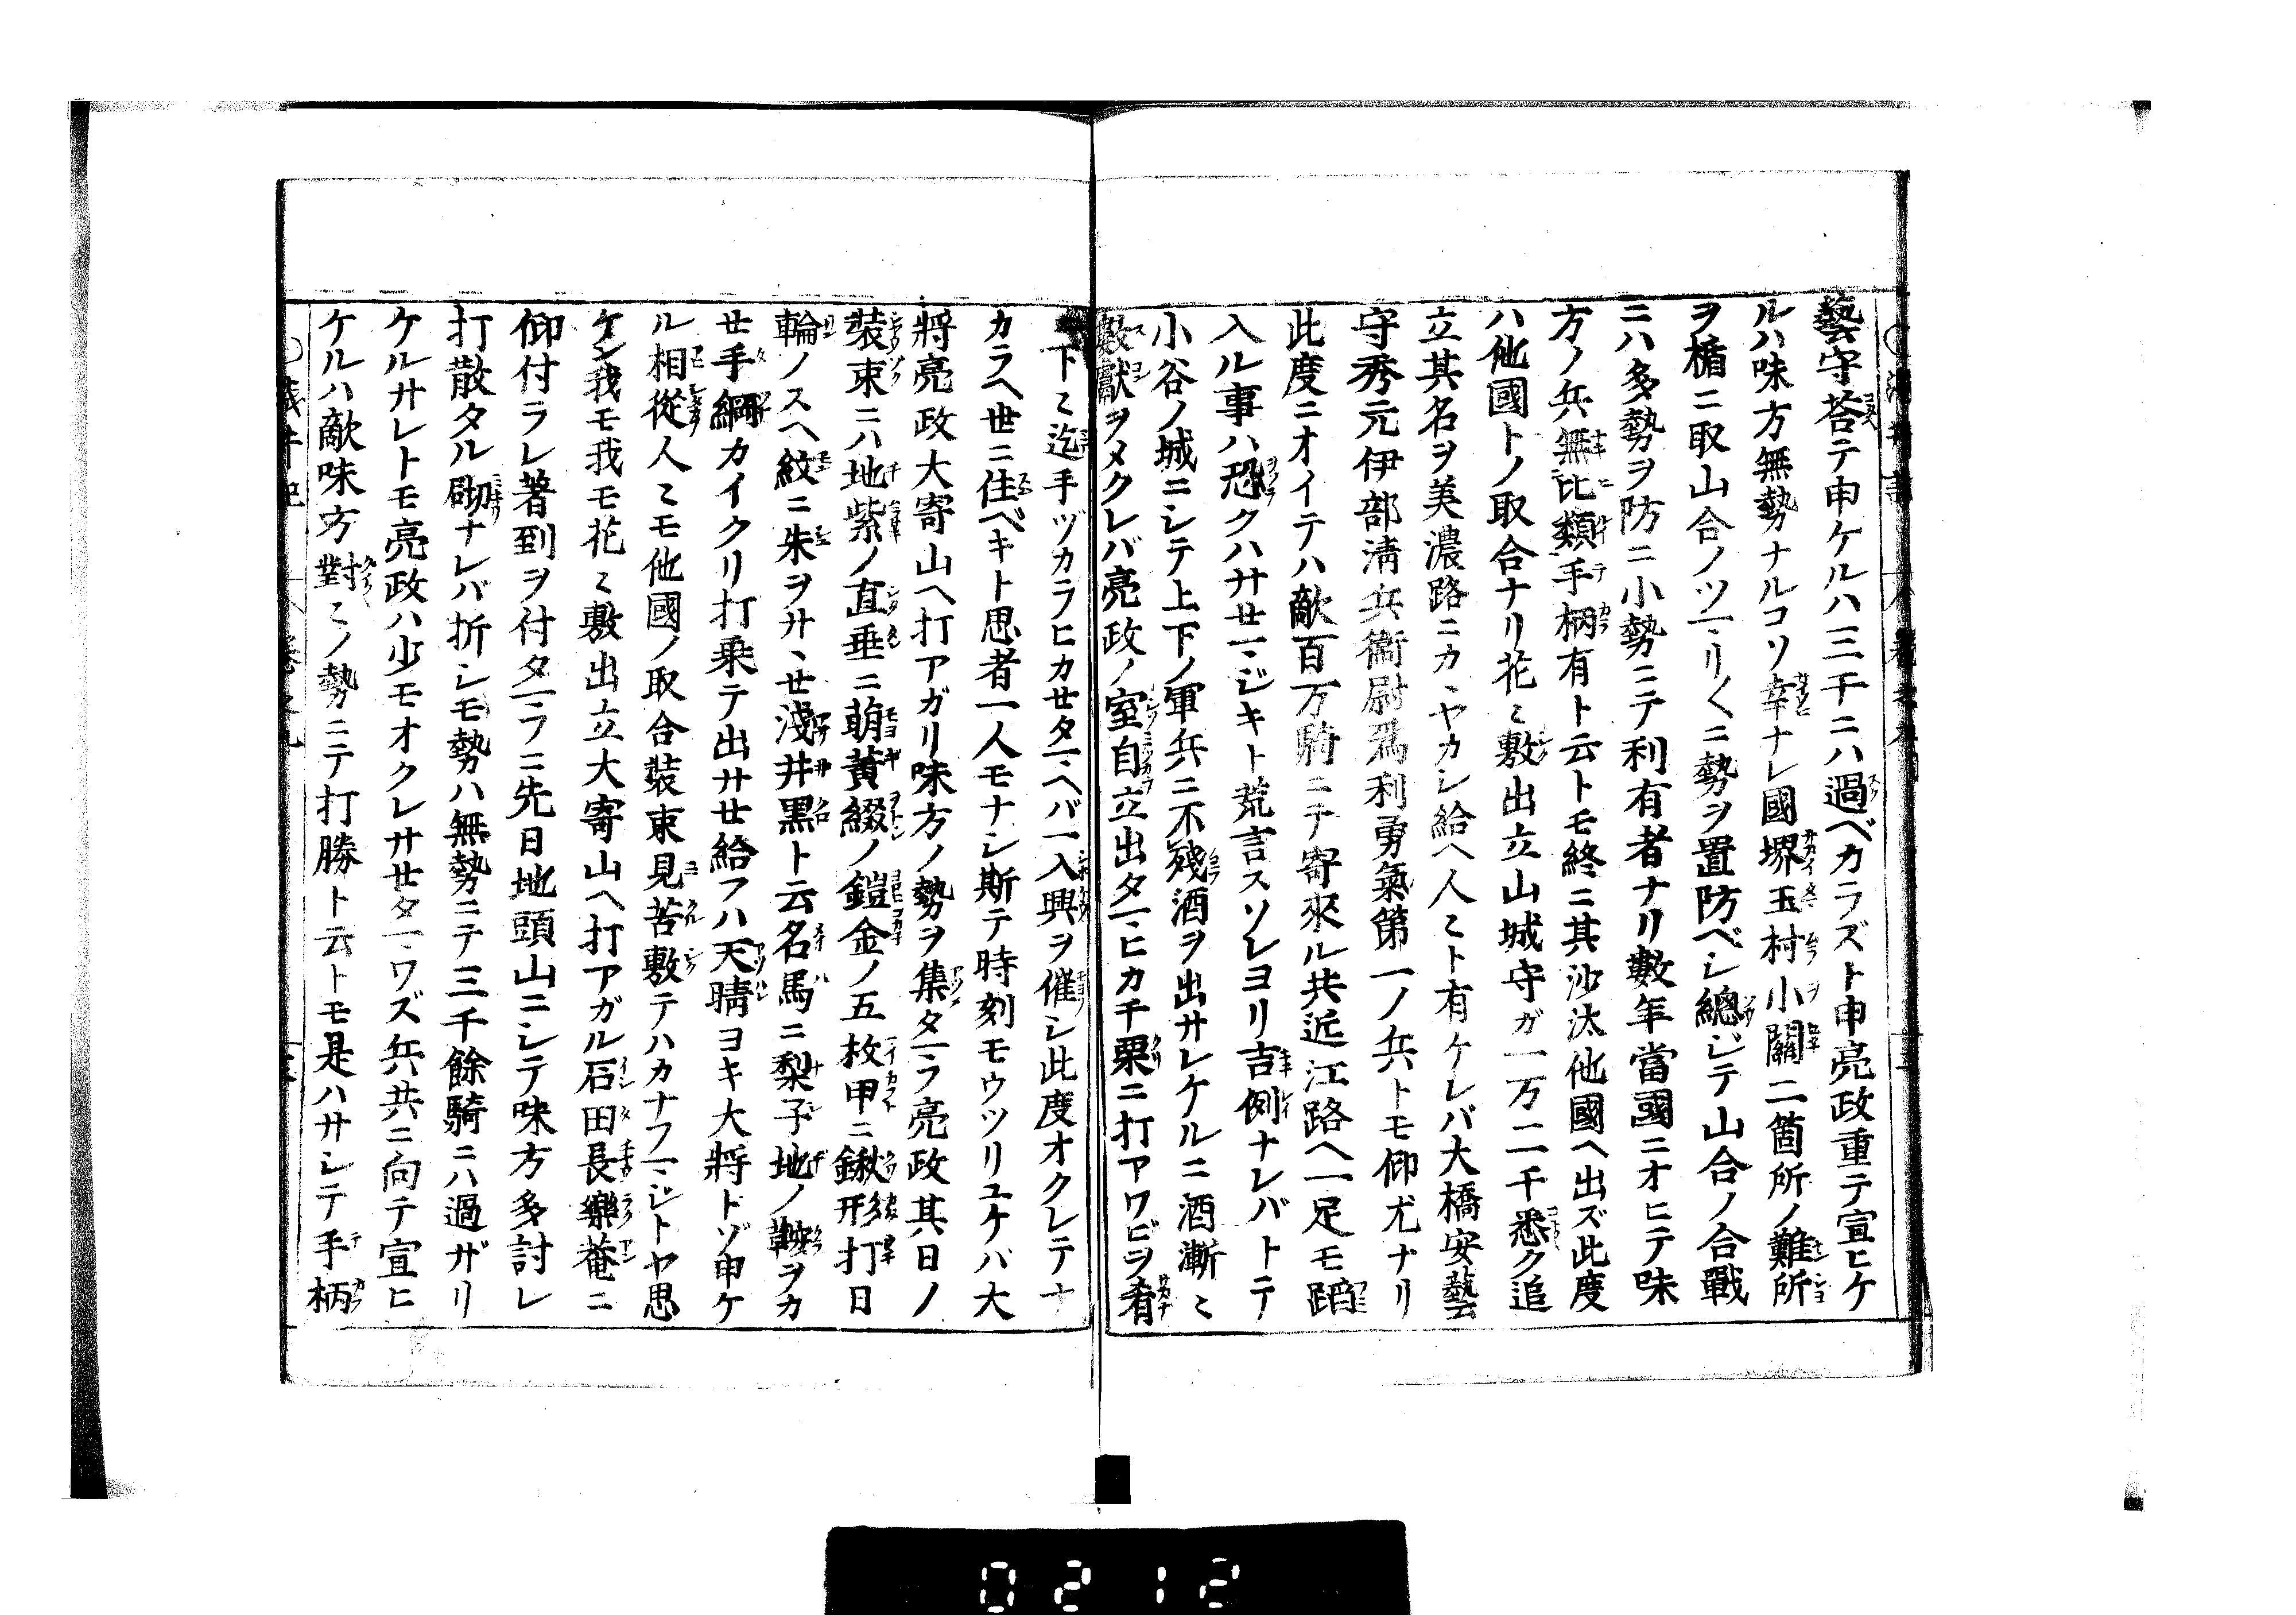 藝守荅テ申ケルハ三千ニハ過ベカラズト申亮政重テ宣ヒケ
ルハ味方無勢ナルコソ幸ナレ國堺玉村小關二箇所ノ難所
ヲ楯ニ取山合ノツマリ〱ニ勢ヲ置防ベシ總ジテ山合ノ合戰
ニハ多勢ヲ防ニ小勢ニテ利有者ナリ數年當國ニオヒテ味
方ノ兵無比類手柄有ト云トモ終ニ其沙汰他國ヘ出ズ此度
ハ他國トノ取合ナリ花ミ敷出立山城守ガ一万二千悉ク追
立其名ヲ美濃路ニカヽヤカシ給ヘ人ミト有ケレバ大橋安藝
守秀元伊部淸兵衞尉爲利勇氣第一ノ兵トモ仰尤ナリ
此度ニオイテハ敵百万騎ニテ寄來ル共近江路ヘ一足モ蹈
入ル事ハ恐クハサセマジキト荒言スソレヨリ吉例ナレバトテ
小谷ノ城ニシテ上下ノ軍兵ニ不殘酒ヲ出サレケルニ酒漸ミ
數獻ヲメクレバ亮政ノ室自立出タマヒカチ栗ニ打アワビヲ肴
下ミ迄手ヅカラヒカセタマヘバ一入興ヲ催シ此度オクレテナ
カラヘ世ニ住ベキト思者一人モナシ斯テ時刻モウツリユケバ大
將亮政大寄山ヘ打アガリ味方ノ勢ヲ集タマフ亮政其日ノ
裝束ニハ地紫ノ直垂ニ萌黃綴ノ鎧金ノ五枚甲ニ鍬形打日
輪ノスヘ紋ニ朱ヲサヽセ淺井黒ト云名馬ニ梨子地ノ鞍ヲカ
セ手綱カイクリ打乗テ出サセ給フハ天晴ヨキ大將トゾ申ケ
ル相從人ミモ他國ノ取合裝束見苦敷テハカナフマジトヤ思
ケン我モ我モ花ミ敷出立大寄山ヘ打アガル石田長樂菴ニ
仰付ラレ著到ヲ付タマフニ先日地頭山ニシテ味方多討レ
打散タル砌ナレバ折シモ勢ハ無勢ニテ三千餘騎ニハ過ザリ
ケルサレトモ亮政ハ少モオクレサセタマワズ兵共ニ向テ宣ヒ
ケルハ敵味方對ミノ勢ニテ打勝ト云トモ是ハサシテ手柄
0212